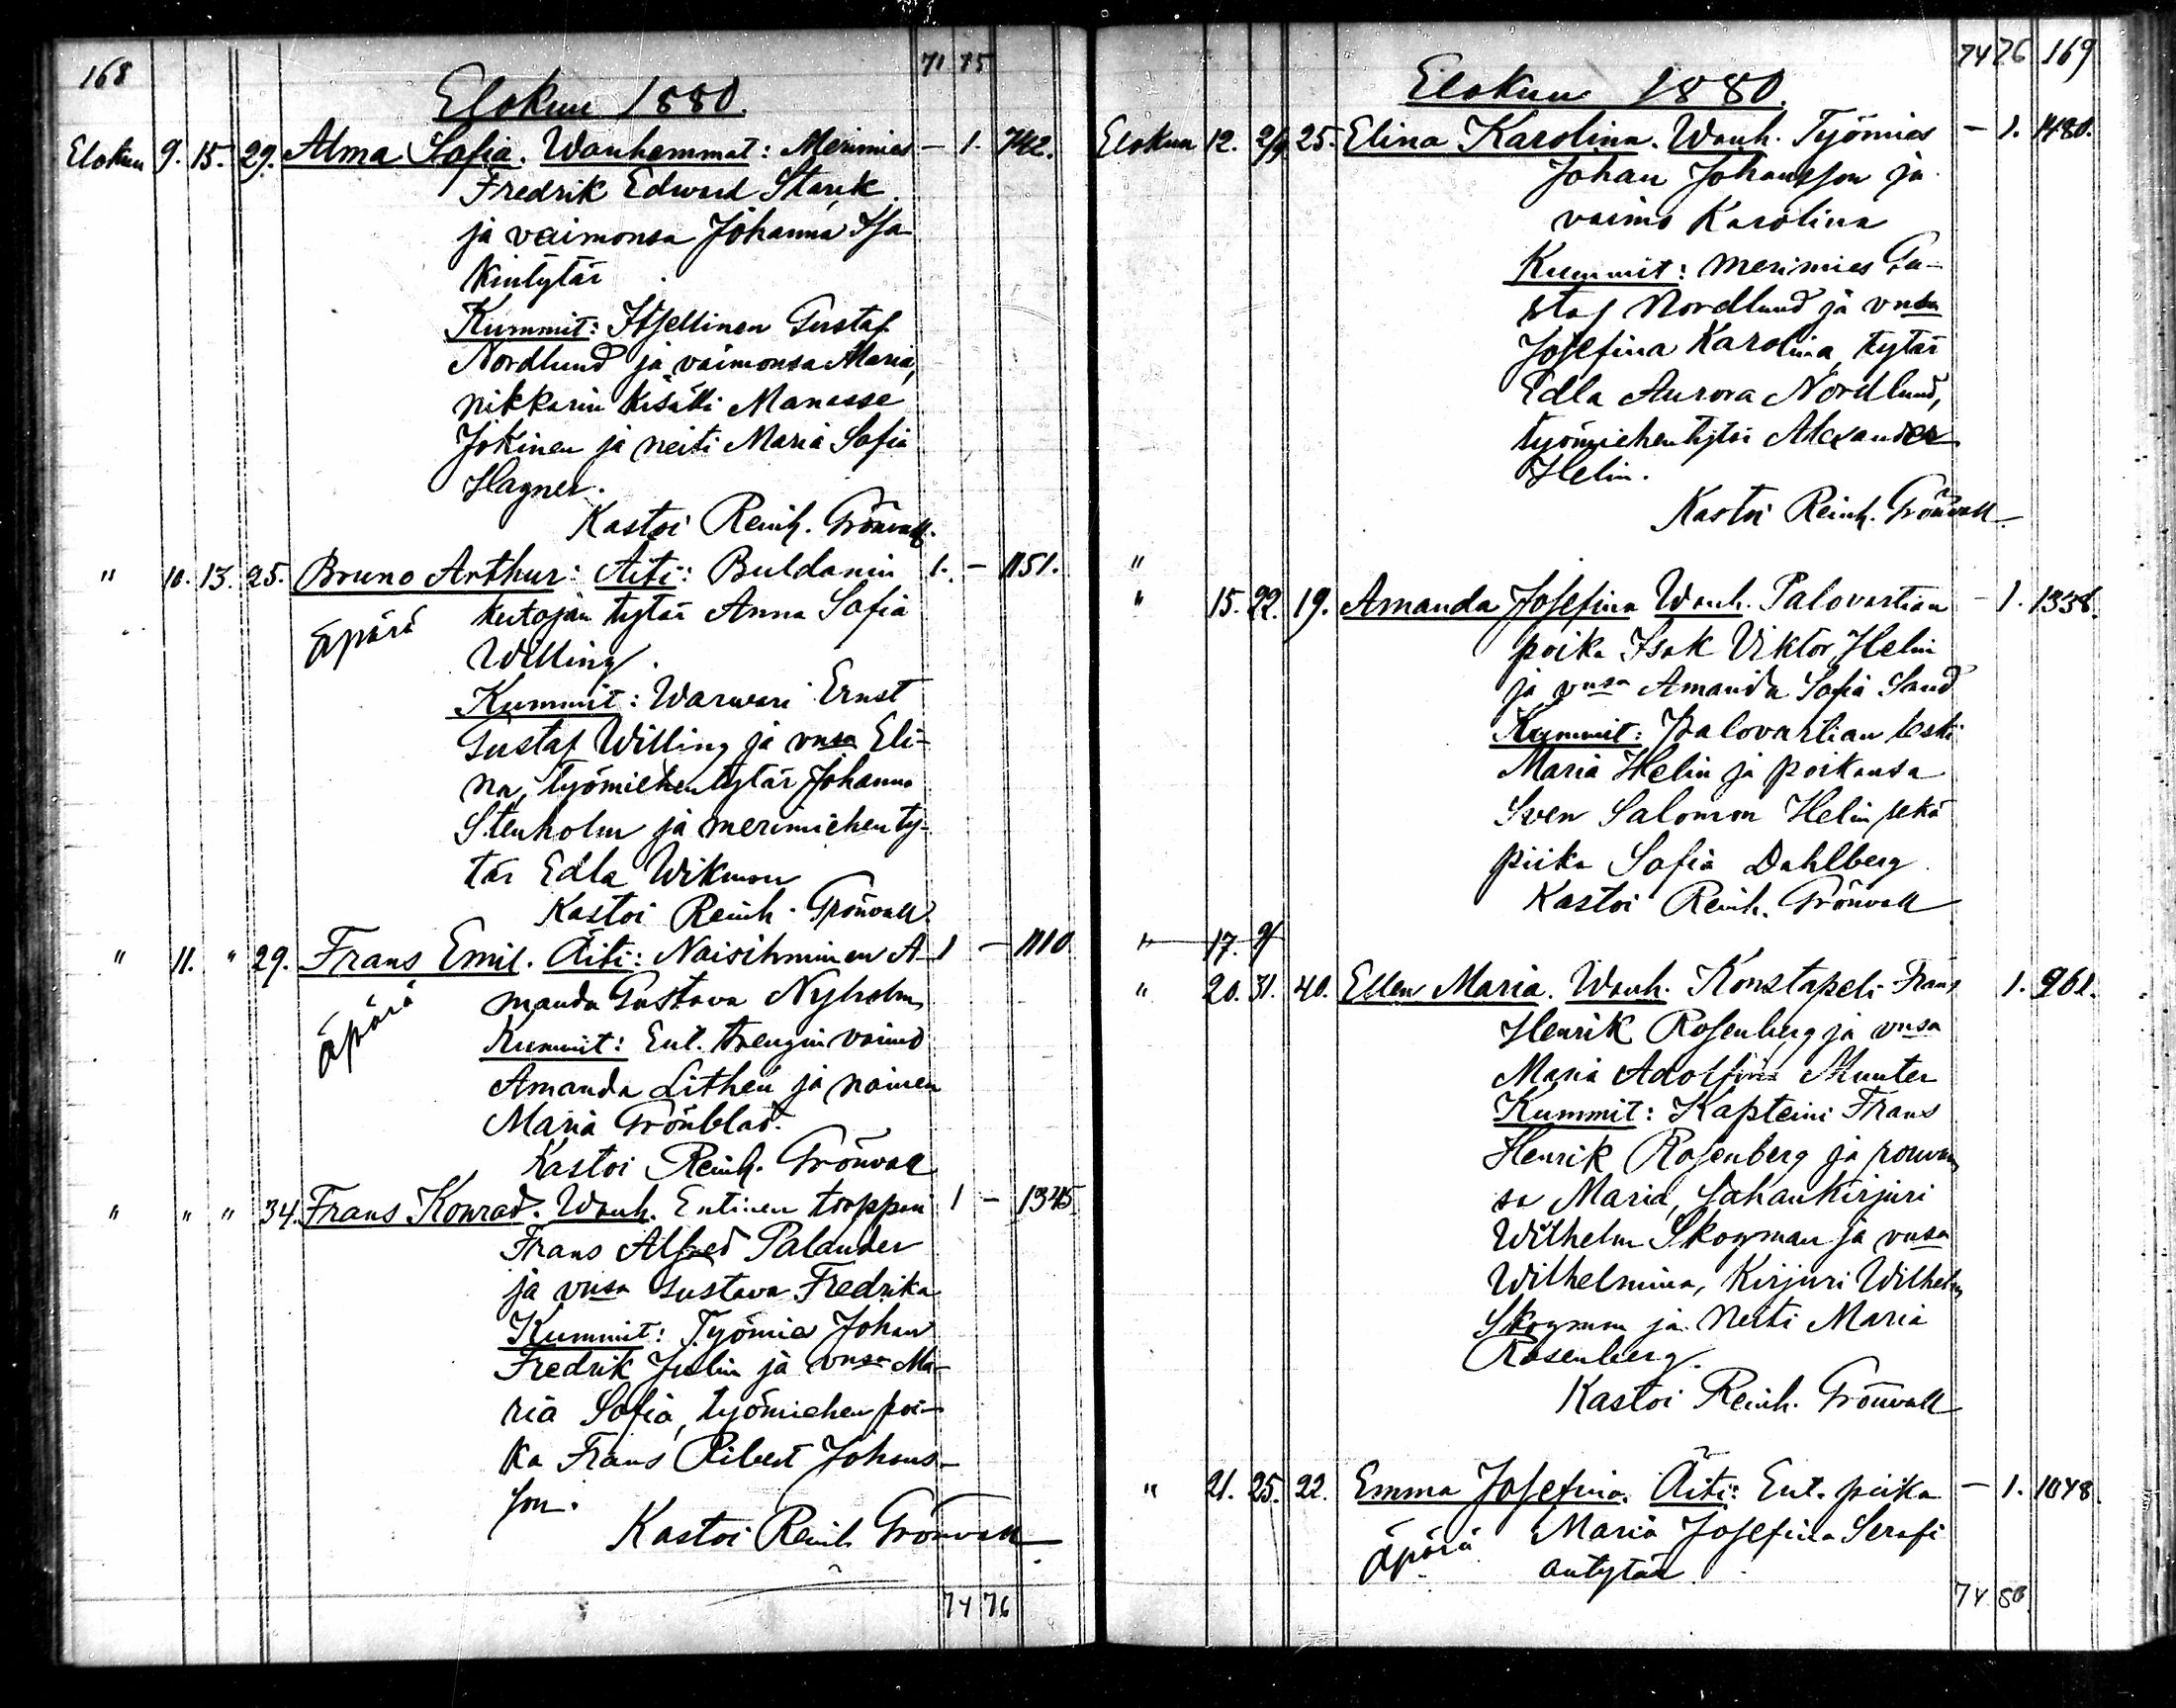 168 71 75
Elokuu 1880.
Elokuu 9. 15. 29. Alma Sofia. Wanhemmat: Merimies — 1. 742.
Fredrik Edward Stark
ja vaimonsa Johanna Isa-
kintytär
Kummit: Itsellinen Gustaf
Nordlund ja vaimonsa Maria,
nikkarin kisälli Manasse
Jokinen ja neiti Maria Sofia
Hagner.
Kastoi Reinh. Grönvall.
" 10. 13. 25. Bruno Arthur: Äiti: Buldanin 1. — 1151.
äpärä kutojan tytär Anna Sofia
Willing.
Kummit: Warwari Ernst
Gustaf Willing ja vnsa Eli-
na, työmiehentytär Johanna
Stenholm ja merimiehenty-
tär Edla Wikman
Kastoi Reinh. Grönvall.
" 11. " 29. Frans Emil. Äiti: Naisihminen A- 1 — 1110
äpärä manda Gustava Nyholm
Kummit: Ent. trengin vaimo
Amanda Lithen ja nainen
Maria Grönblad.
Kastoi Reinh. Grönvall
" " " 34. Frans Konrad. Wanh. Entinen torppari 1 — 1345
Frans Alfred Palander
ja vnsa Gustava Fredrika
Kummit: Työmies Johan
Fredrik Julin ja vnsa Ma-
ria Sofia, työmiehen poi-
ka Frans Johans-
son.
Kastoi Reinh Grönvall
74 76
74 76 169
Elokuu 1880.
Elokuu 12. 2/9 25. Elina Karolina. Wanh. Työmies — 1. 1480.
Johan Johansson ja
vaimo Karolina
Kummit: merimies Gu-
staf Nordlund ja vnsa
Josefina Karolina, tytär
Edla Aurora Nordlund,
Alexander
Helin.
Kastoi Reinh. Grönvall
"
" 15. 22. 19. Amanda Josefina Wanh. Palovartian — 1. 1338.
poika Isak Viktor Helin
ja vnsa Amanda Sofia Sand
Kummit: Palovartian leski
Maria Helin ja poikansa
Sven Salomon Helin sekä
piika Sofia Dahlberg
Kastoi Reinh. Grönvall
" 17.
" 20. 31. 40. Ellen Maria. Wanh. Konstapeli Frans 1. 961.
Henrik Rosenberg ja vnsa
Maria Adolfina Munter
Kummit: Kapteini Frans
Henrik Rosenberg ja rouvan
sa Maria, Sahankirjuri
Wilhelm Skogman ja vnsa
Wilhelmina, Kirjuri Wilhelm
Skogman ja Neiti Maria
Rosenberg.
Kastoi Reinh. Grönvall
" 21. 25. 22. Emma Josefina. Äiti: Ent. piika — 1. 1048.
äpärä Maria Josefina Serafi
antytär
74 80